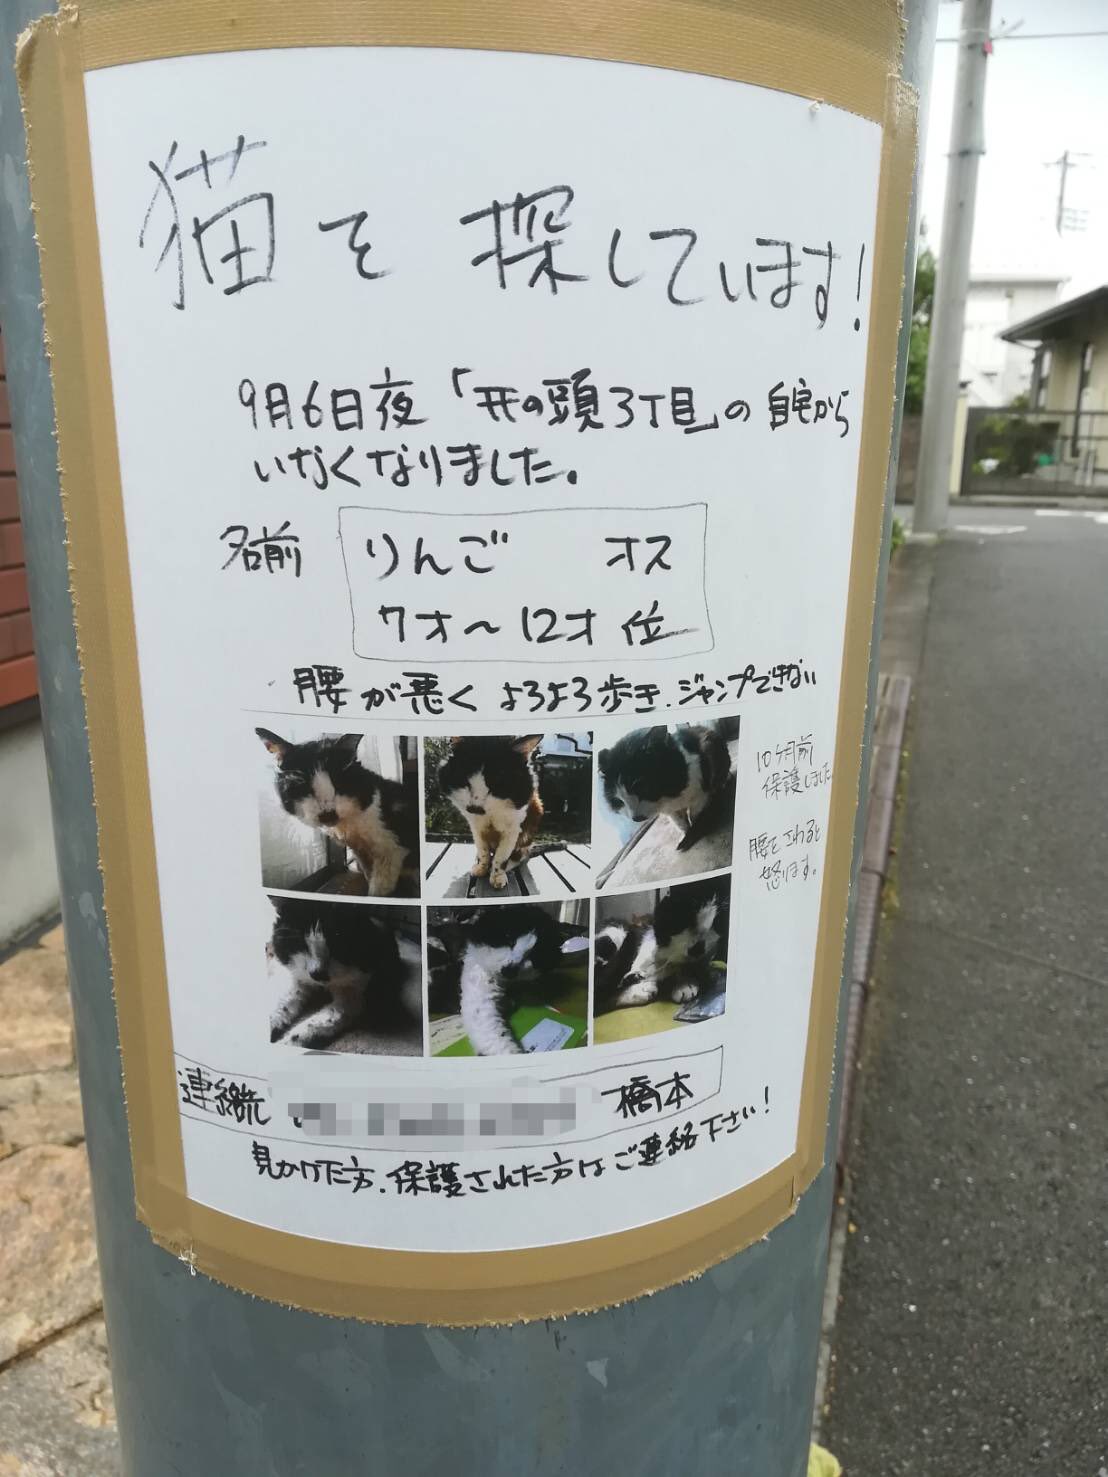 猫を探しています!
9月6日夜「井の頭3丁目」の自宅から
いなくなりました。
名前 りんご オス
7才～12才位
腰が悪くよろよろ歩き.ジャンプできない
10ヶ月前
保護しました
腰をさわると
怒ります。
連絡先 橋本
見かけた方.保護された方はご連絡下さい!